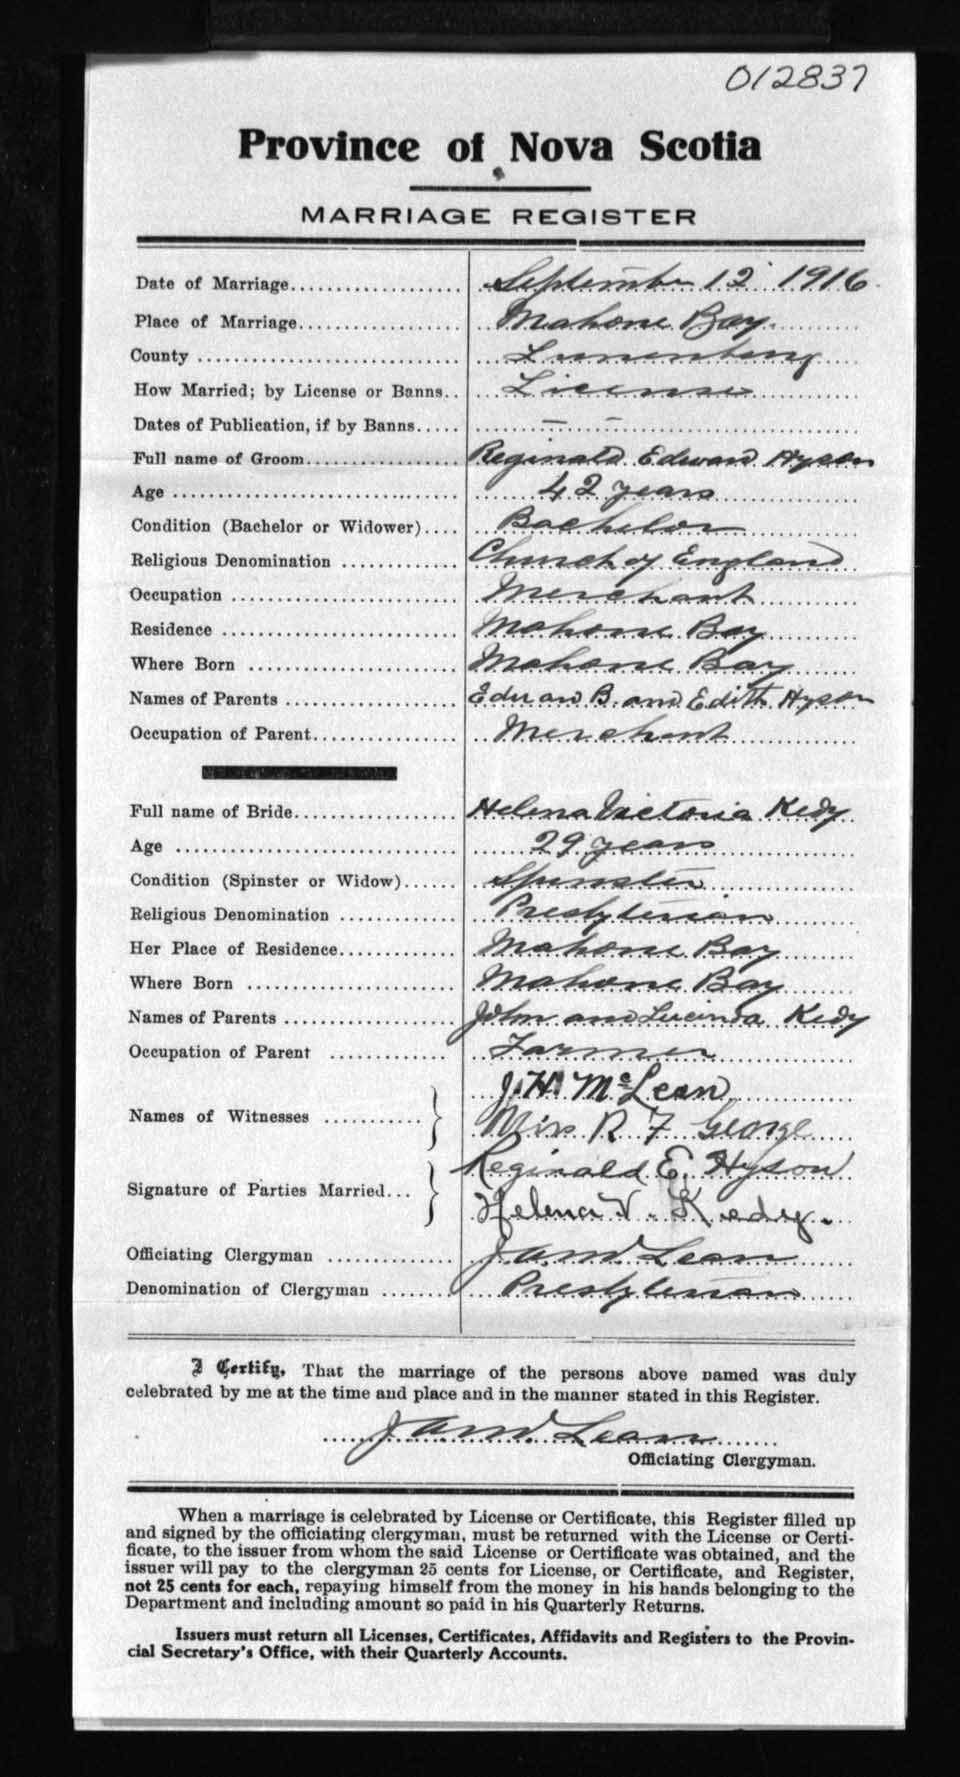 012837
Province of Nova Scotia
MARRIAGE REGISTER
Date of Marriage.................... September 12 1916
Place of Marriage................... Mahone Bay
County ........................... Lunenburg
How Married; by License or Banns.. License
Dates of Publication, if by Banns..... — —
Full name of Groom................. Reginald Edward Hyson
Age ............................. 42 years
Condition (Bachelor or Widower).... Bachelor
Religious Denomination ............ Church of England
Occupation ....................... Merchant
Residence ........................ Mahone Bay
Where Born ...................... Mahone Bay
Names of Parents .................. Edward B. and Edith Hyson
Occupation of Parent............... Merchant
Full name of Bride................. Helena Victoria Kedy
Age ............................. 29 years
Condition (Spinster or Widow)...... Spinster
Religious Denomination ............ Presbyterian
Her Place of Residence............. Mahone Bay
Where Born ...................... Mahone Bay
Names of Parents .................. John and Lucinda Kedy
Occupation of Parent ............ Farmer
J. H. McLean
Names of Witnesses ...........
Miss R F George
Reginald E. Hyson
Signature of Parties Married...
Helena V. Kedy.
Officiating Clergyman ............. J A McLean
Denomination of Clergyman ........ Presbyterian
I Certify, That the marriage of the persons above named was duly
celebrated by me at the time and place and in the manner stated in this Register.
J A McLean
Officiating Clergyman.
When a marriage is celebrated by License or Certificate, this Register filled up
and signed by the officiating clergyman, must be returned with the License or Certi-
ficate, to the issuer from whom the said License or Certificate was obtained, and the
issuer will pay to the clergyman 25 cents for License, or Certificate, and Register,
not 25 cents for each, repaying himself from the money in his hands belonging to the
Department and including amount so paid in his Quarterly Returns.
Issuers must return all Licenses, Certificates, Affidavits and Registers to the Provin-
cial Secretary's Office, with their Quarterly Accounts.